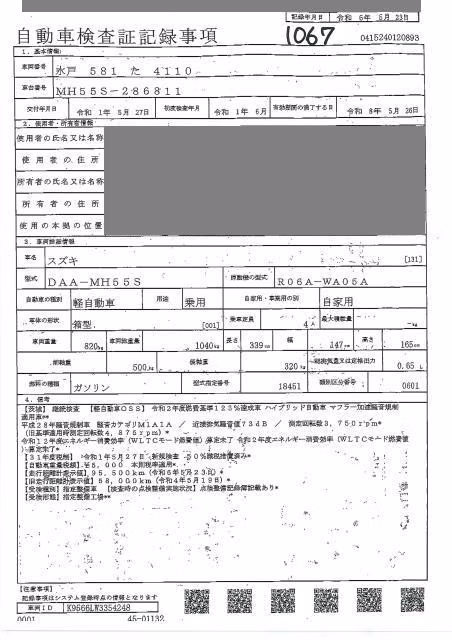 記録年月日 令和 6年 5月 23日
自動車検査証記録事項 1067 0415240120893
1. 基本情報
車両番号 水戸 581 た 4110
車台番号 MH55S-286811
交付年月日 令和 1年 5月 27日 初度検査年月 令和 1年 6月 有効期間の満了する日 令和 8年 5月 26日
2. 使用者・所有者情報
使用者の氏名又は名称
使用者の住所
所有者の氏名又は名称
所有者の住所
使用の本拠の位置
3. 車両詳細情報
車名 スズキ [131]
型式 DAA-MH55S 原動機の型式 R06A-WA05A
自動車の種別 軽自動車 用途 乗用 自家用・事業用の別 自家用
車体の形状 箱型 [001] 乗車定員 4人 最大積載量 -kg
車両重量 820kg 車両総重量 1040kg 長さ 339cm 幅 147cm 高さ 165cm
前軸重 500kg 後軸重 320kg 総排気量又は定格出力 0.65 L
燃料の種類 ガソリン 型式指定番号 18451 類別区分番号 0601
4. 備考
【茨城】 継続検査 【軽自動車OSS】 令和2年度燃費基準123%達成車 ハイブリッド自動車 マフラー加速騒音規制
適用車**
平成28年騒音規制車 騒音カテゴリM1A1A / 近接排気騒音値73dB / 測定回転数3,750rpm*
(旧基準適用時測定回転数4,875rpm)*
令和12年度エネルギー消費効率(WLTCモード燃費値)算定未了 令和2年度エネルギー消費効率(WLTCモード燃費値
)算定未了*
【31年度税制】 令和1年5月27日 新規検査 50%減税措置済み*
【自動車重量税額】 ¥5,000 本則税率適用*
【走行距離計表示値】 95,500km (令和6年5月23日)*
【旧走行距離計表示値】 58,000km (令和4年5月19日)*
【受検種別】 指定整備車 【検査時の点検整備実施状況】 点検整備記録簿記載あり*
【受検形態】 指定整備工場**
【注意事項】
記録事項はシステム登録時点の情報となります
車両ID K9566LW3354248
0001 45-01132